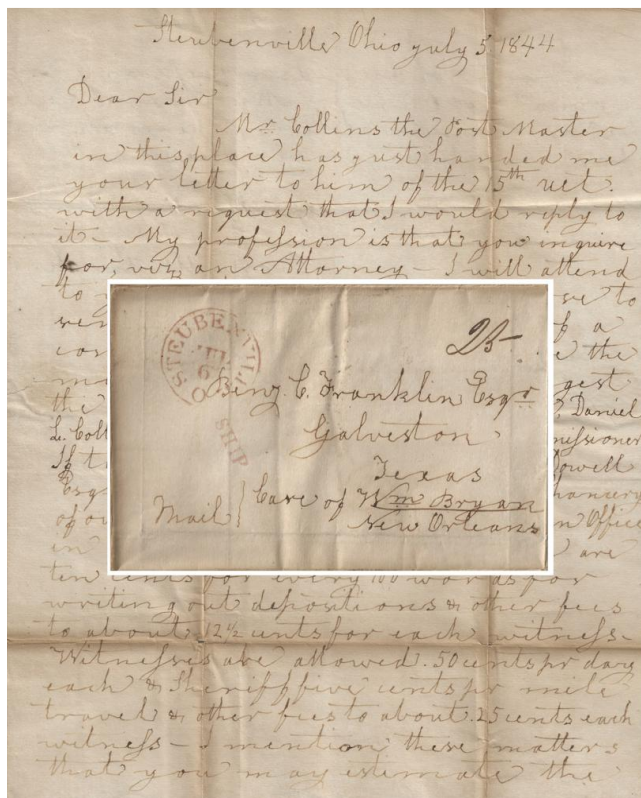 Steubenville Ohio july 5 1844
Dear Sir
Mr Collins the Post Master
in this place has just handed me
your letter to him of the 15th ult.
with a request that I would reply to
it - My profession is that you inquire
for, viz, an Attorney - I will attend
to
ve to
of a
the
gest
the Daniel
L. Coll missioner
If t Dowell
Esqr hancery
of ou n Office
in are
ten cents for every 100 words for
writing out depositions & other fees
to about 12½ cents for each witness -
Witnesses are allowed .50 cents pr day
each & Sheriff five cents pr mile
travel & other fees to about .25 cents each
witness - I mention these matters
that you may estimate the
STEUBENVILLE O
JUL 6
25
Benj. C. Franklin Esqr
Galveston
SHIP
Texas
Mail } Care of Wm Bryan
New Orleans